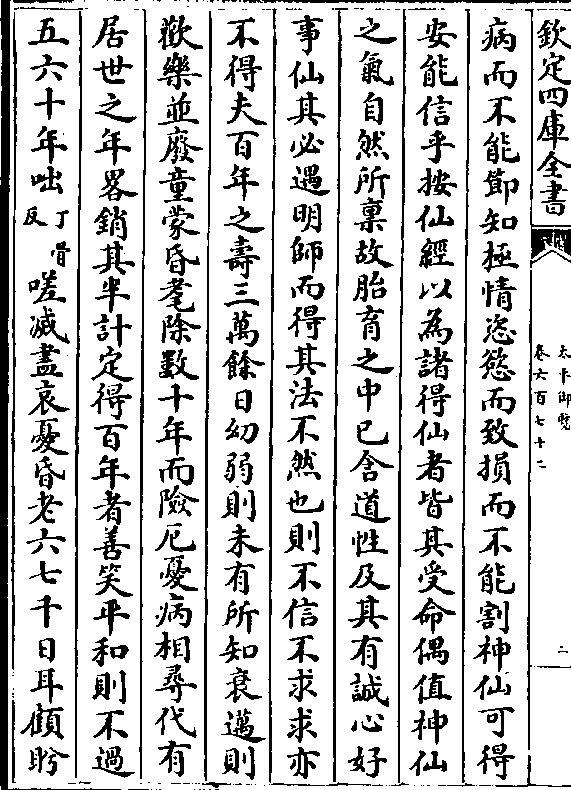 欽定四庫全書
太平御覽
卷六百七十二
二
病而不能節知極情恣慾而致損而不能割神仙可得
安能信乎按仙經以為諸得仙者皆其受命偶值神仙
之氣自然所稟故胎育之中已含道性及其有誠心好
事仙其必遇明師而得其法不然也則不信不求求亦
不得夫百年之壽三萬餘日幼弱則未有所知衰邁則
歡樂並廢童蒙昏耄除數十年而險厄憂病相尋代有
居世之年畧銷其半計定得百年者善笑平和則不過
五六十年咄丁骨反嗟減盡哀憂昏老六七千日耳顧眄